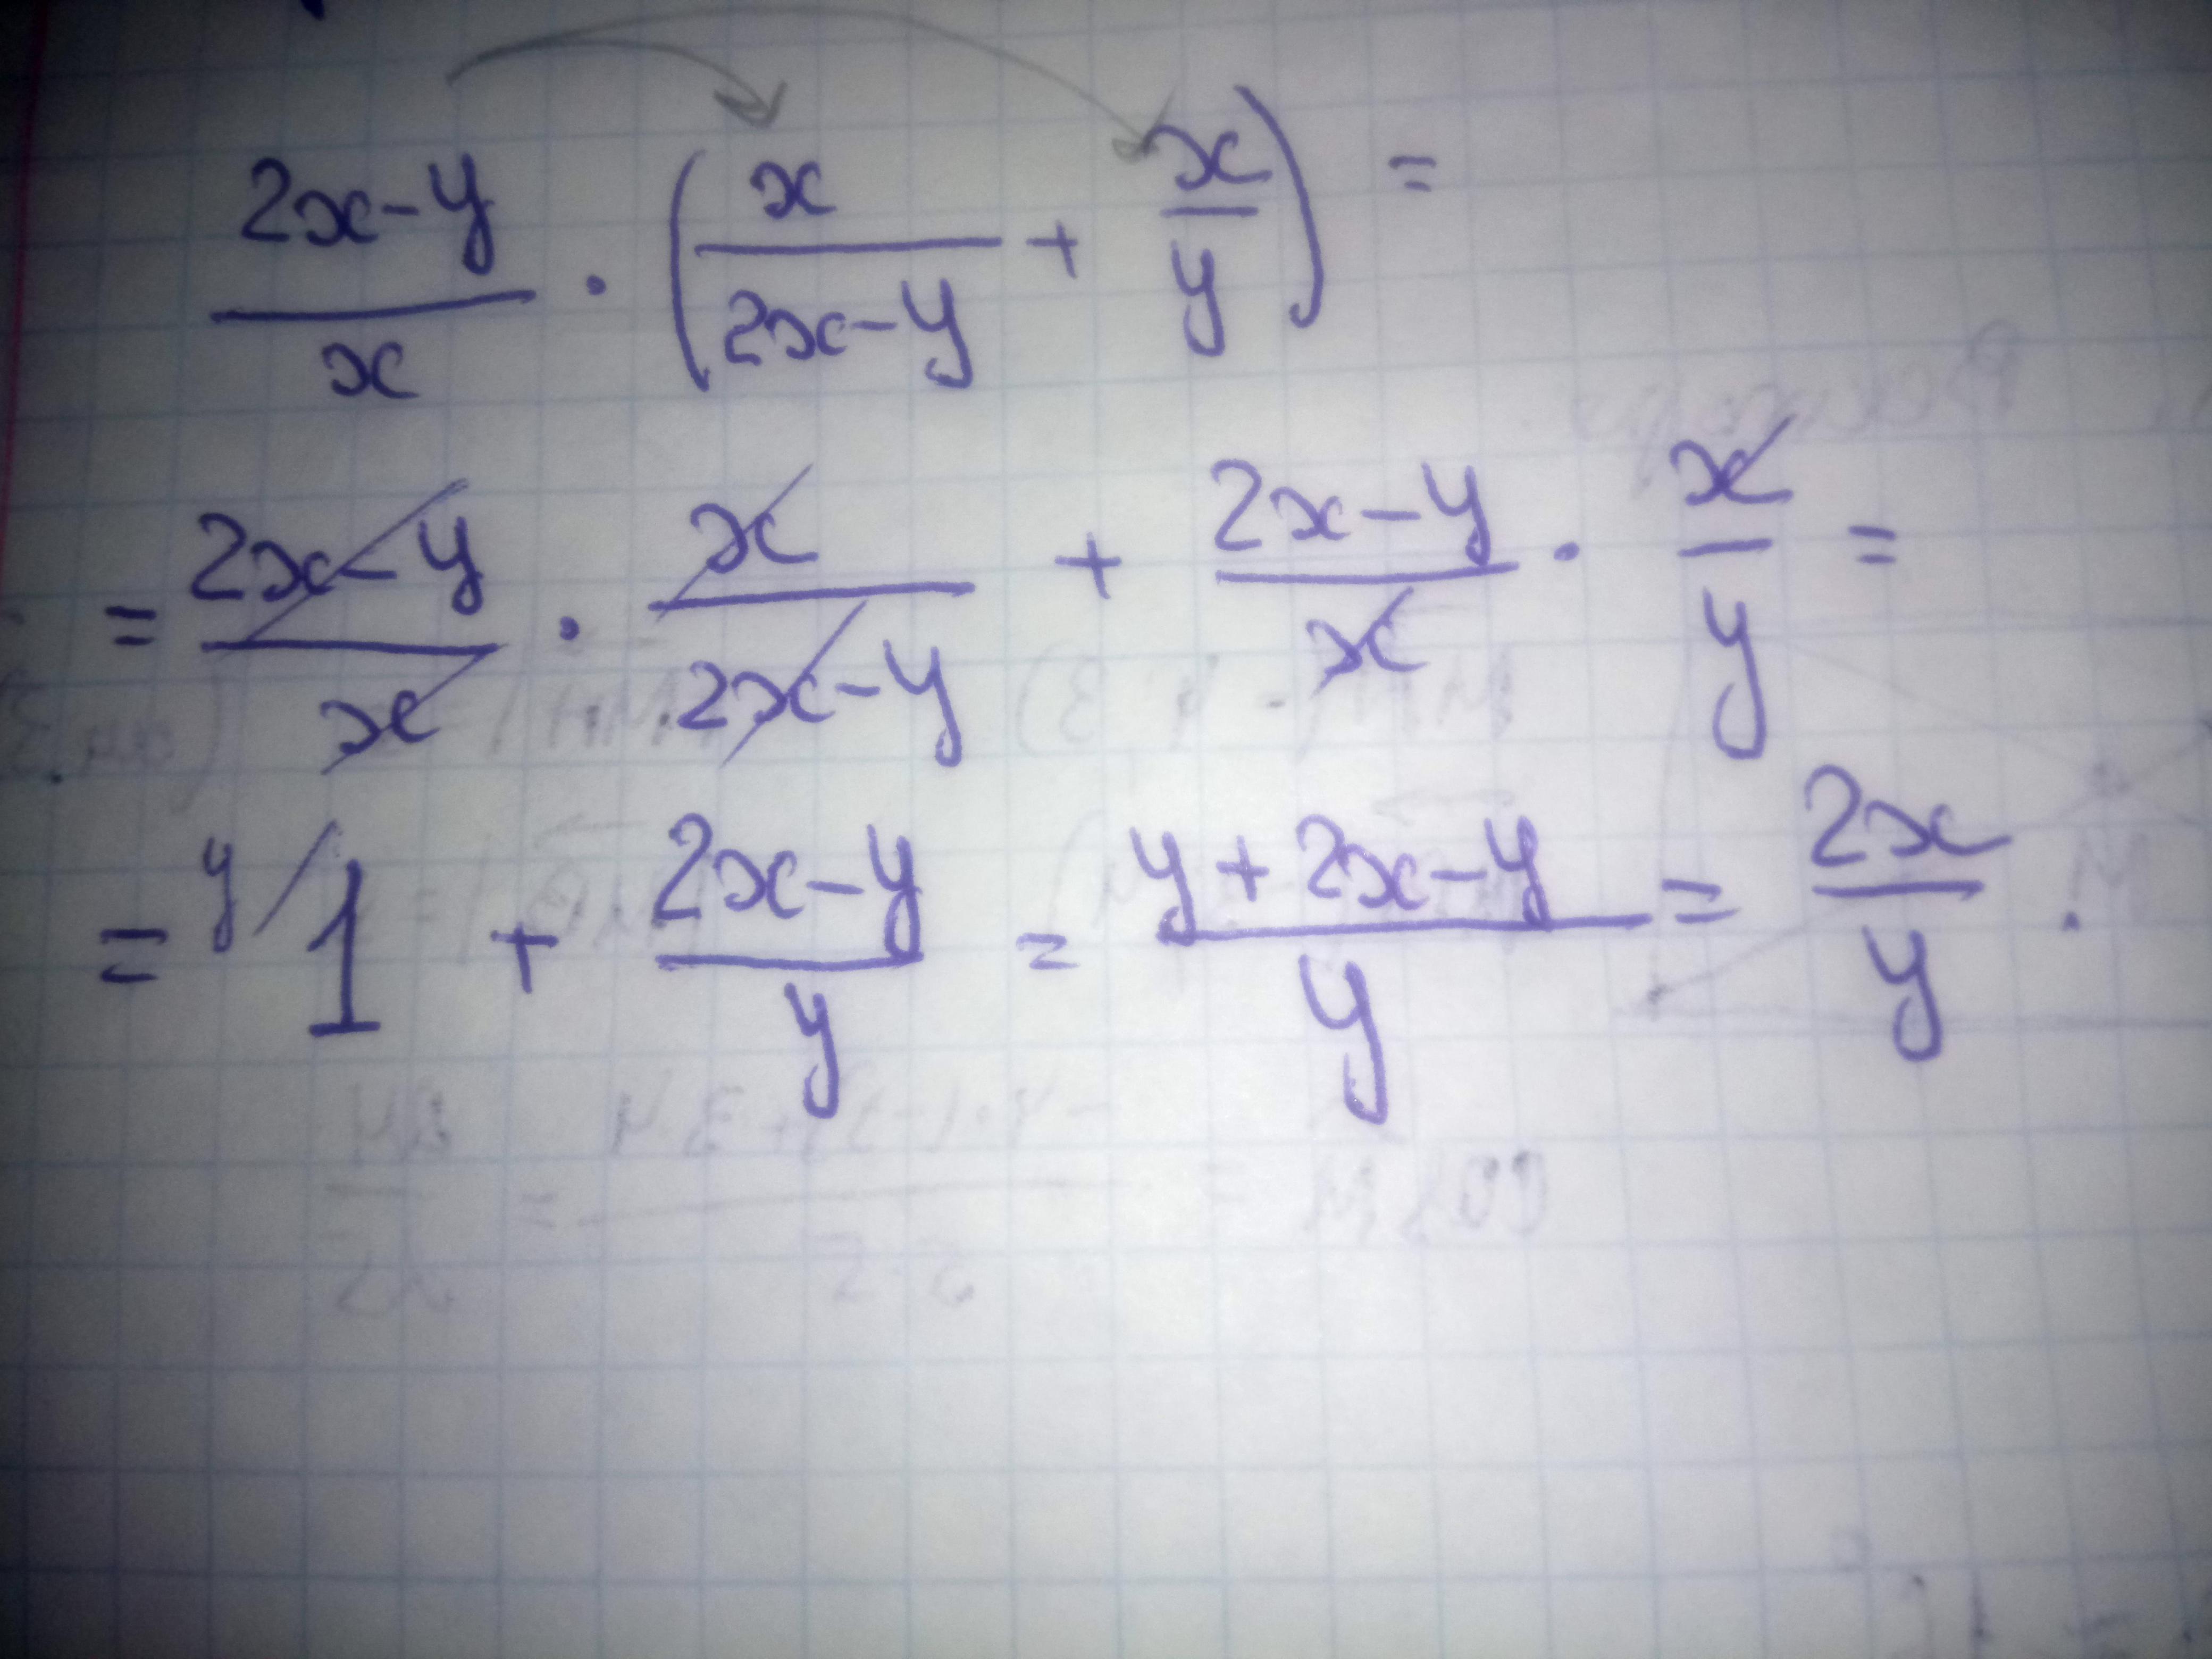 (2x-y)/x · (x/(2x-y) + x/y) =
= (2x-y)/x · x/(2x-y) + (2x-y)/x · x/y =
= y/ 1 + (2x-y)/y = (y+2x-y)/y = 2x/y .